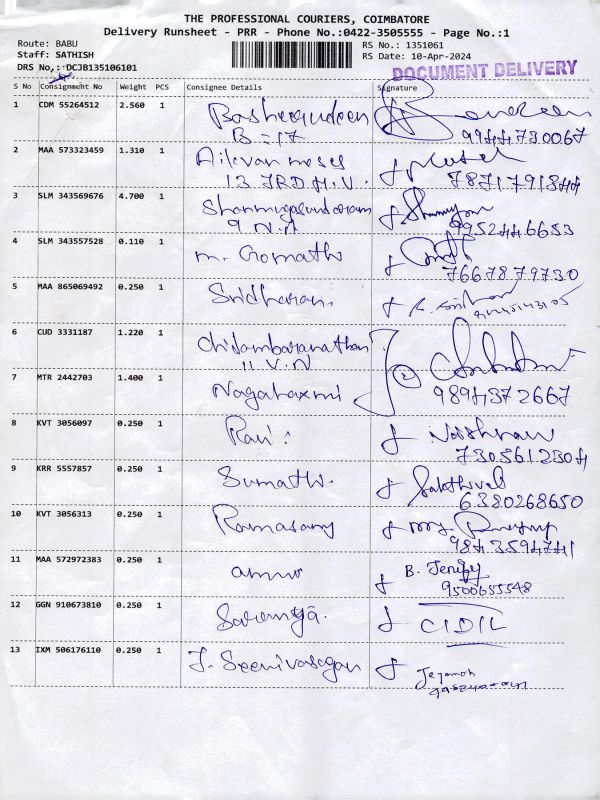 THE PROFESSIONAL COURIERS, COIMBATORE
Delivery Runsheet - PRR - Phone No.:0422-3505555 - Page No.:1
Route: BABU
Staff: SATHISH
DRS No.: DCJB135106101
RS No.: 1351061
RS Date: 10-Apr-2024
DOCUMENT DELIVERY
S No Consignment No Weight PCS Consignee Details Signature
1 CDM 55264512 2.560 1 Basheerudeen
B=17
9944730067
2 MAA 573323459 1.310 1
7871791844
3 SLM 343569676 4.700 1 Shanmugasundaram
9 N.N
9952446653
4 SLM 343557528 0.110 1 M. Gomathi
7667879730
5 MAA 865069492 0.250 1 Sridharan.
6 CUD 3331187 1.220 1 Chidambaranathan
11 V.N
7 MTR 2442703 1.400 1 Nagalaxmi
9894372667
8 KVT 3056097 0.250 1 Ravi
7305612304
9 KRR 5557857 0.250 1 Sumathi. Sakthivel
6380268650
10 KVT 3056313 0.250 1 Ramasamy
9843594741
11 MAA 572972383 0.250 1 B. Jenify
9500655548
12 GGN 910673810 0.250 1 Saranya.
13 IXM 506176110 0.250 1 J. Seenivasagan